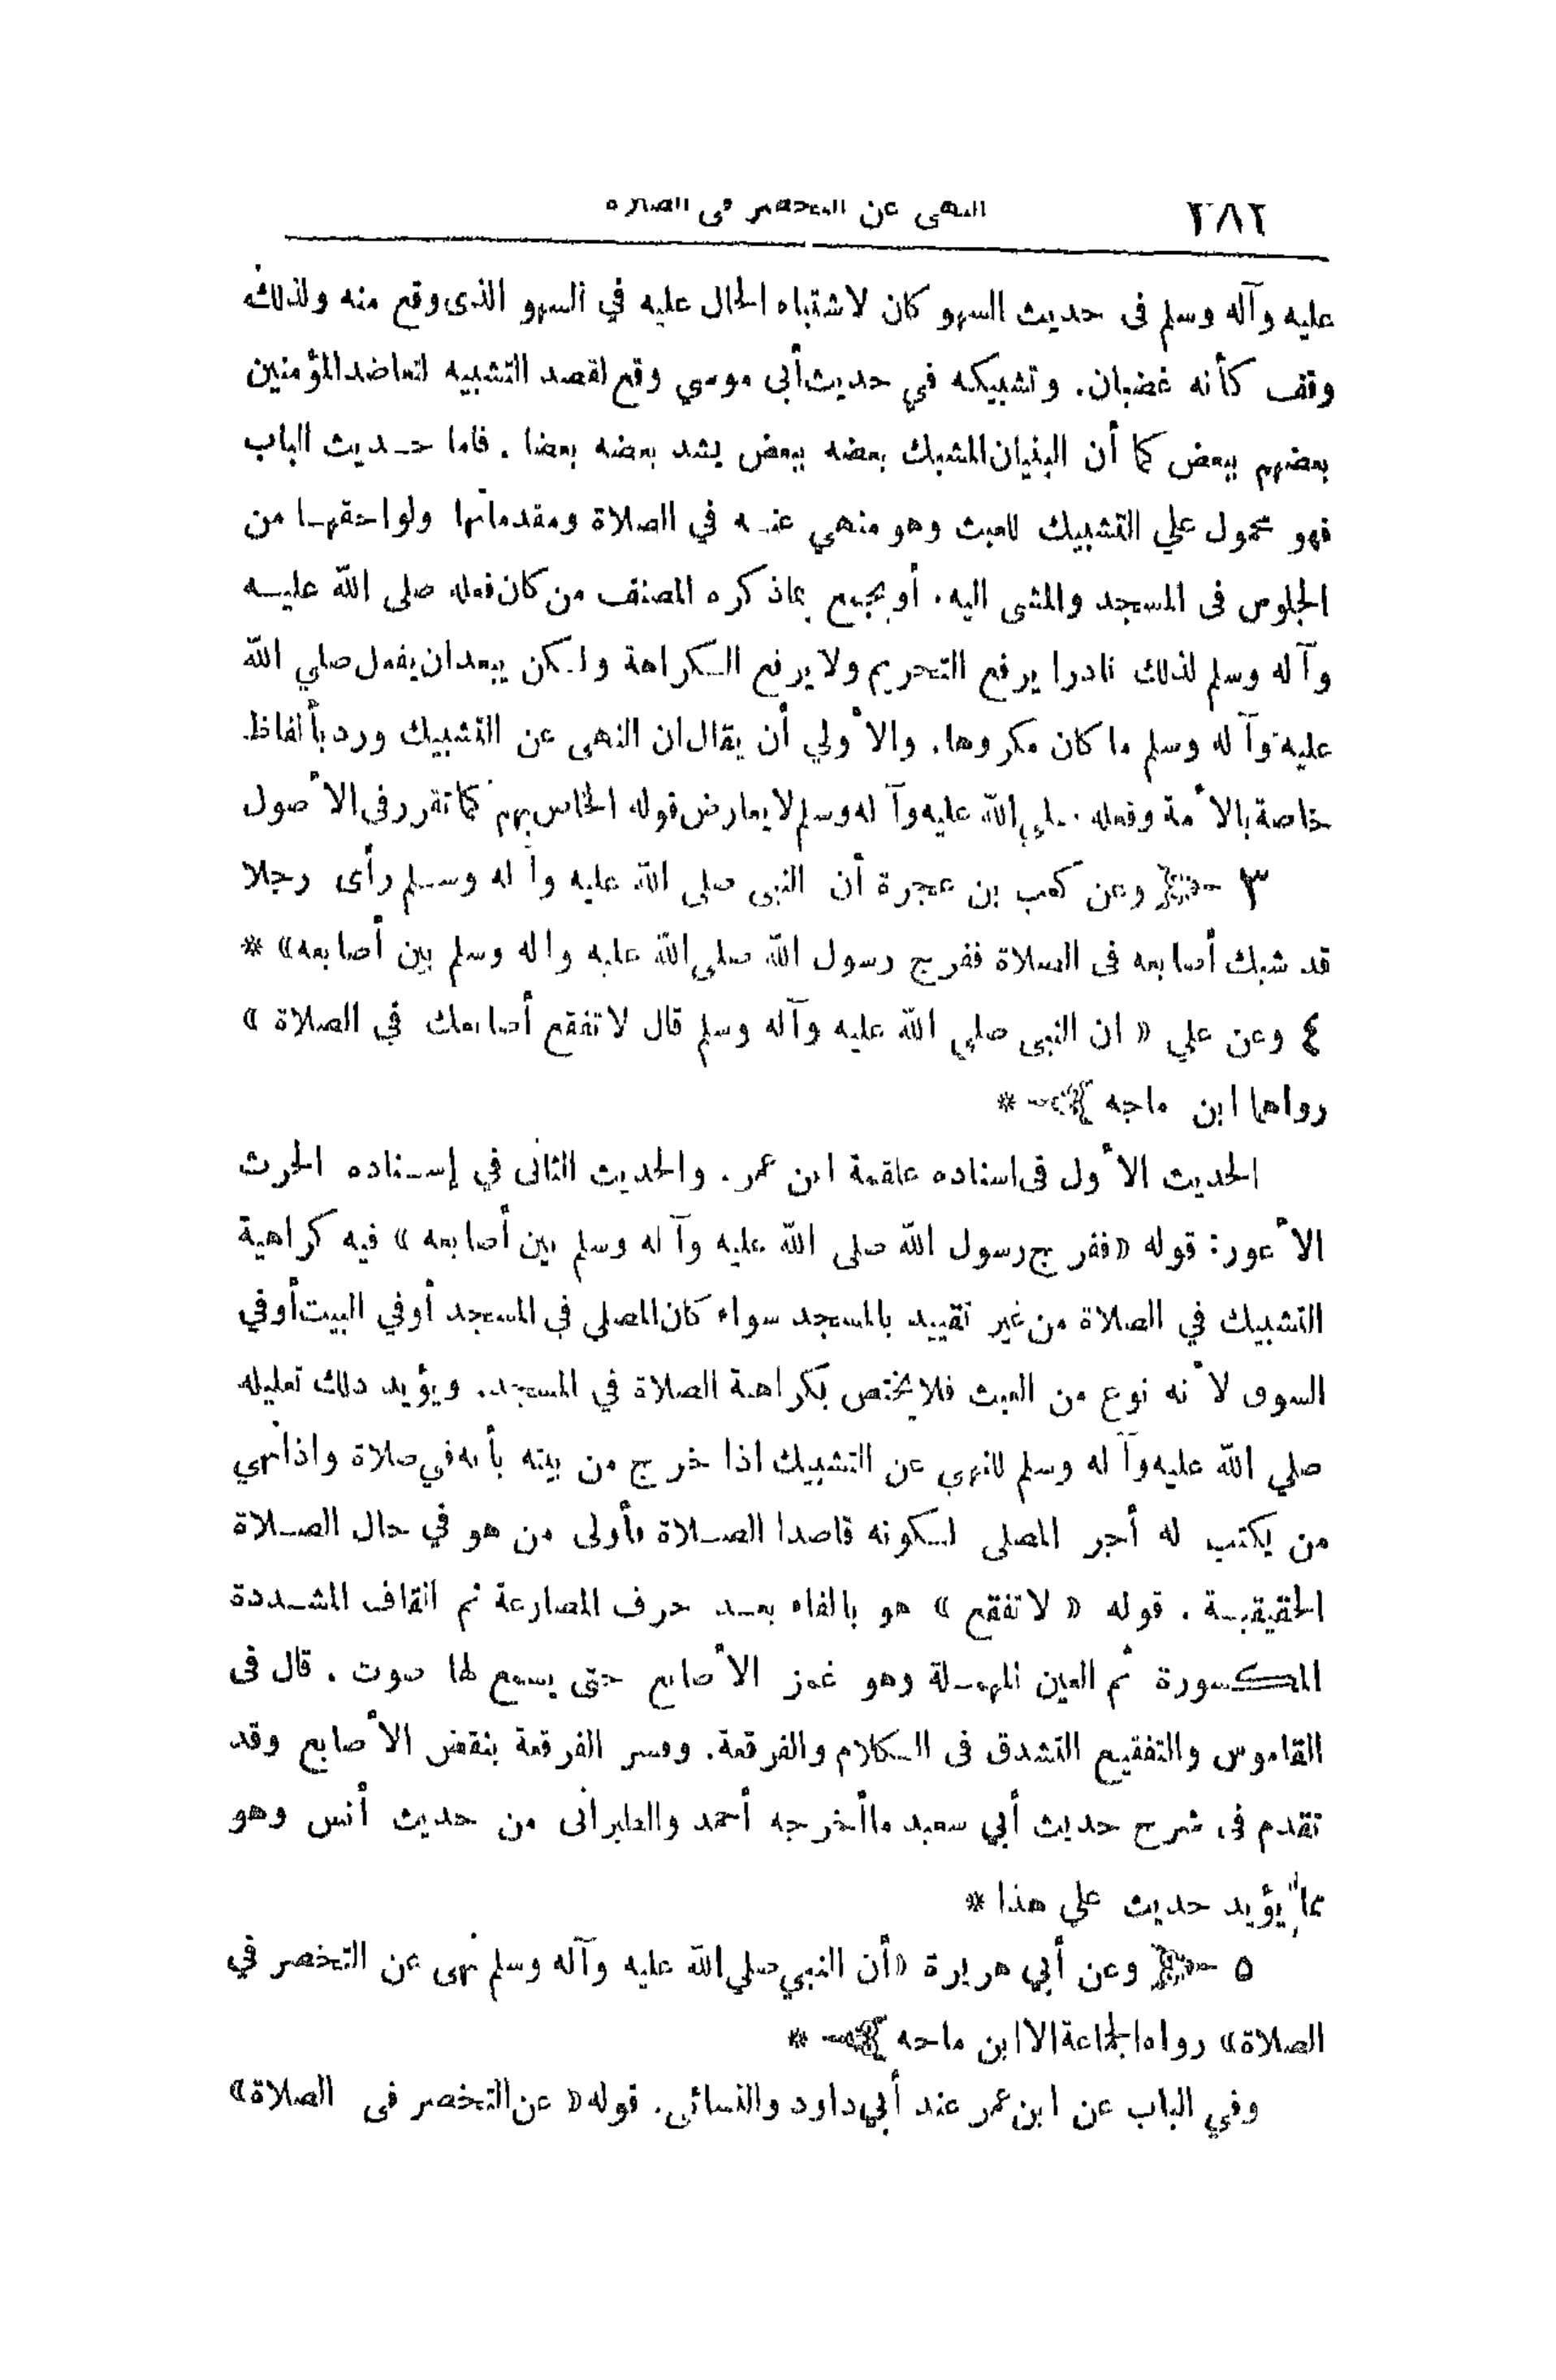 ٢٨٢ النهى عن التخصر فى الصلاة
عليه وآله وسلم فى حديث السهو كان لاشتباه الحال عليه في السهو الذى وقع منه ولذلك
وقف كأنه غضبان. وتشبيكه في حديث أبى موسي وقع لقصد التشبيه لتعاضد المؤمنين
بعضهم ببعض كما أن البنيان المشبك بعضه ببعض يشد بعضه بعضا. فاما حديث الباب
فهو محمول علي التشبيك للعبث وهو منهي عنه في الصلاة ومقدماتها ولواحقها من
الجلوس فى المسجد والمشى اليه. أو يجمع بماذكره المصنف من كان فعله صلى الله عليه
وآله وسلم لذلك نادرا يرفع التحريم ولا يرفع الكراهة ولكن يبعد ان يفعل صلي الله
عليه وآله وسلم ما كان مكروها. والأولي أن يقال ان النهى عن التشبيك ورد بألفاظ
خاصة بالأمة وفعله صلي الله عليه وآله وسلم لا يعارض قوله الخاص بهم كما تقرر فى الأصول
٣ وعن كعب بن عجرة أن النبى صلى الله عليه وآله وسلم رأى رجلا
قد شبك أصابعه فى الصلاة ففرج رسول الله صلي الله عليه واله وسلم بين أصابعه» *
٤ وعن علي « ان النبى صلي الله عليه وآله وسلم قال لا تفقع أصابعك في الصلاة »
رواهما ابن ماجه *
الحديث الأول فى اسناده علقمة ابن عمر. والحديث الثانى في إسناده الحرث
الأعور: قوله «ففرج رسول الله صلى الله عليه وآله وسلم بين أصابعه» فيه كراهية
التشبيك في الصلاة من غير تقييد بالمسجد سواء كان المصلي في المسجد أوفي البيت أوفي
السوق لأنه نوع من العبث فلا يختص بكراهة الصلاة في المسجد. ويؤيد ذلك تعليله
صلي الله عليه وآله وسلم للنهى عن التشبيك اذا خرج من بيته بأنه في صلاة واذا نهي
من يكتب له أجر المصلى لكونه قاصدا الصلاة فأولى من هو في حال الصلاة
الحقيقية. قوله « لا تفقع » هو بالفاء بعد حرف المضارعة ثم القاف المشددة
المكسورة ثم العين المهملة وهو غمز الأصابع حتى يسمع لها صوت. قال فى
القاموس والتفقيع التشدق فى الكلام والفرقعة. وفسر الفرقعة بنقض الأصابع وقد
تقدم فى شرح حديث أبي سعيد ما أخرجه أحمد والطبرانى من حديث أنس وهو
مما يؤيد حديث علي هذا *
٥ وعن أبي هريرة «أن النبي صلي الله عليه وآله وسلم نهى عن التخصر في
الصلاة» رواه الجماعة الا ابن ماجه *
وفي الباب عن ابن عمر عند أبي داود والنسائى. قوله « عن التخصر فى الصلاة»